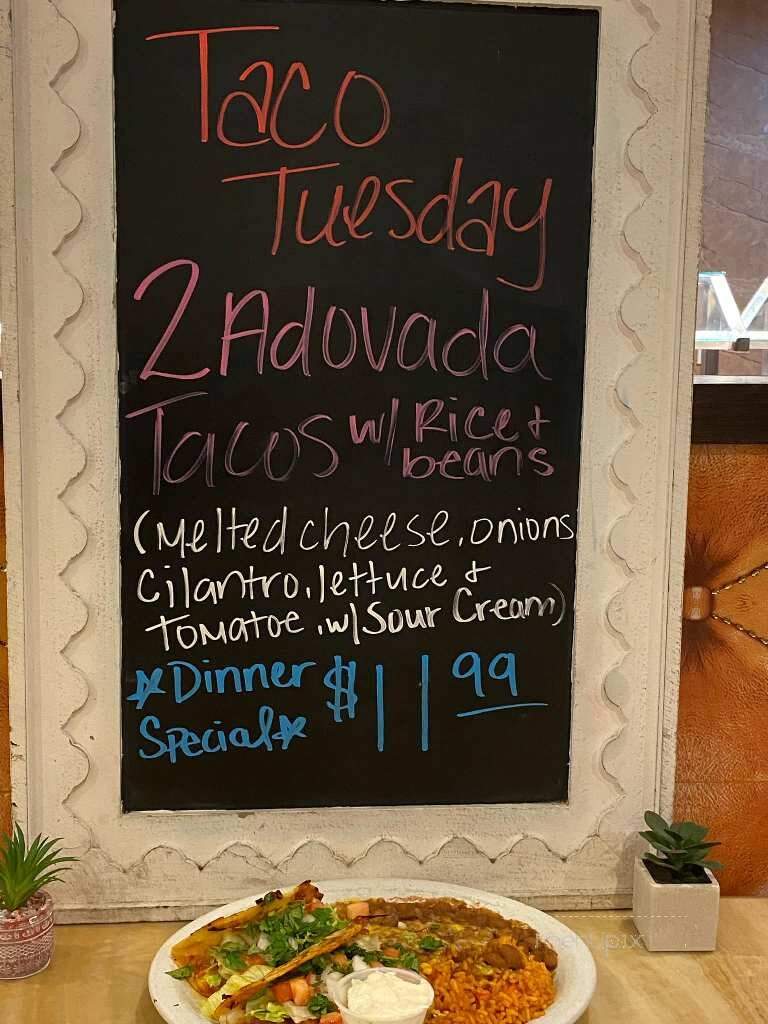 Taco
Tuesday
2 Adovada
Tacos w/ Rice +
beans
(Melted cheese, onions
cilantro, lettuce +
Tomatoe, w/ Sour Cream)
☆Dinner $11 99
Special☆